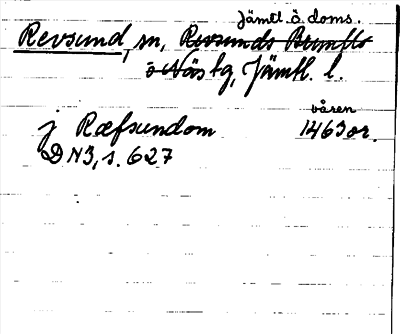 Jämtl. ö. doms.
Revsund, sn, Revsunds Brunflo
o Näs tg, Jämtl. l.
våren
j Ræfsundom 1463 or.
DN 3, s. 627